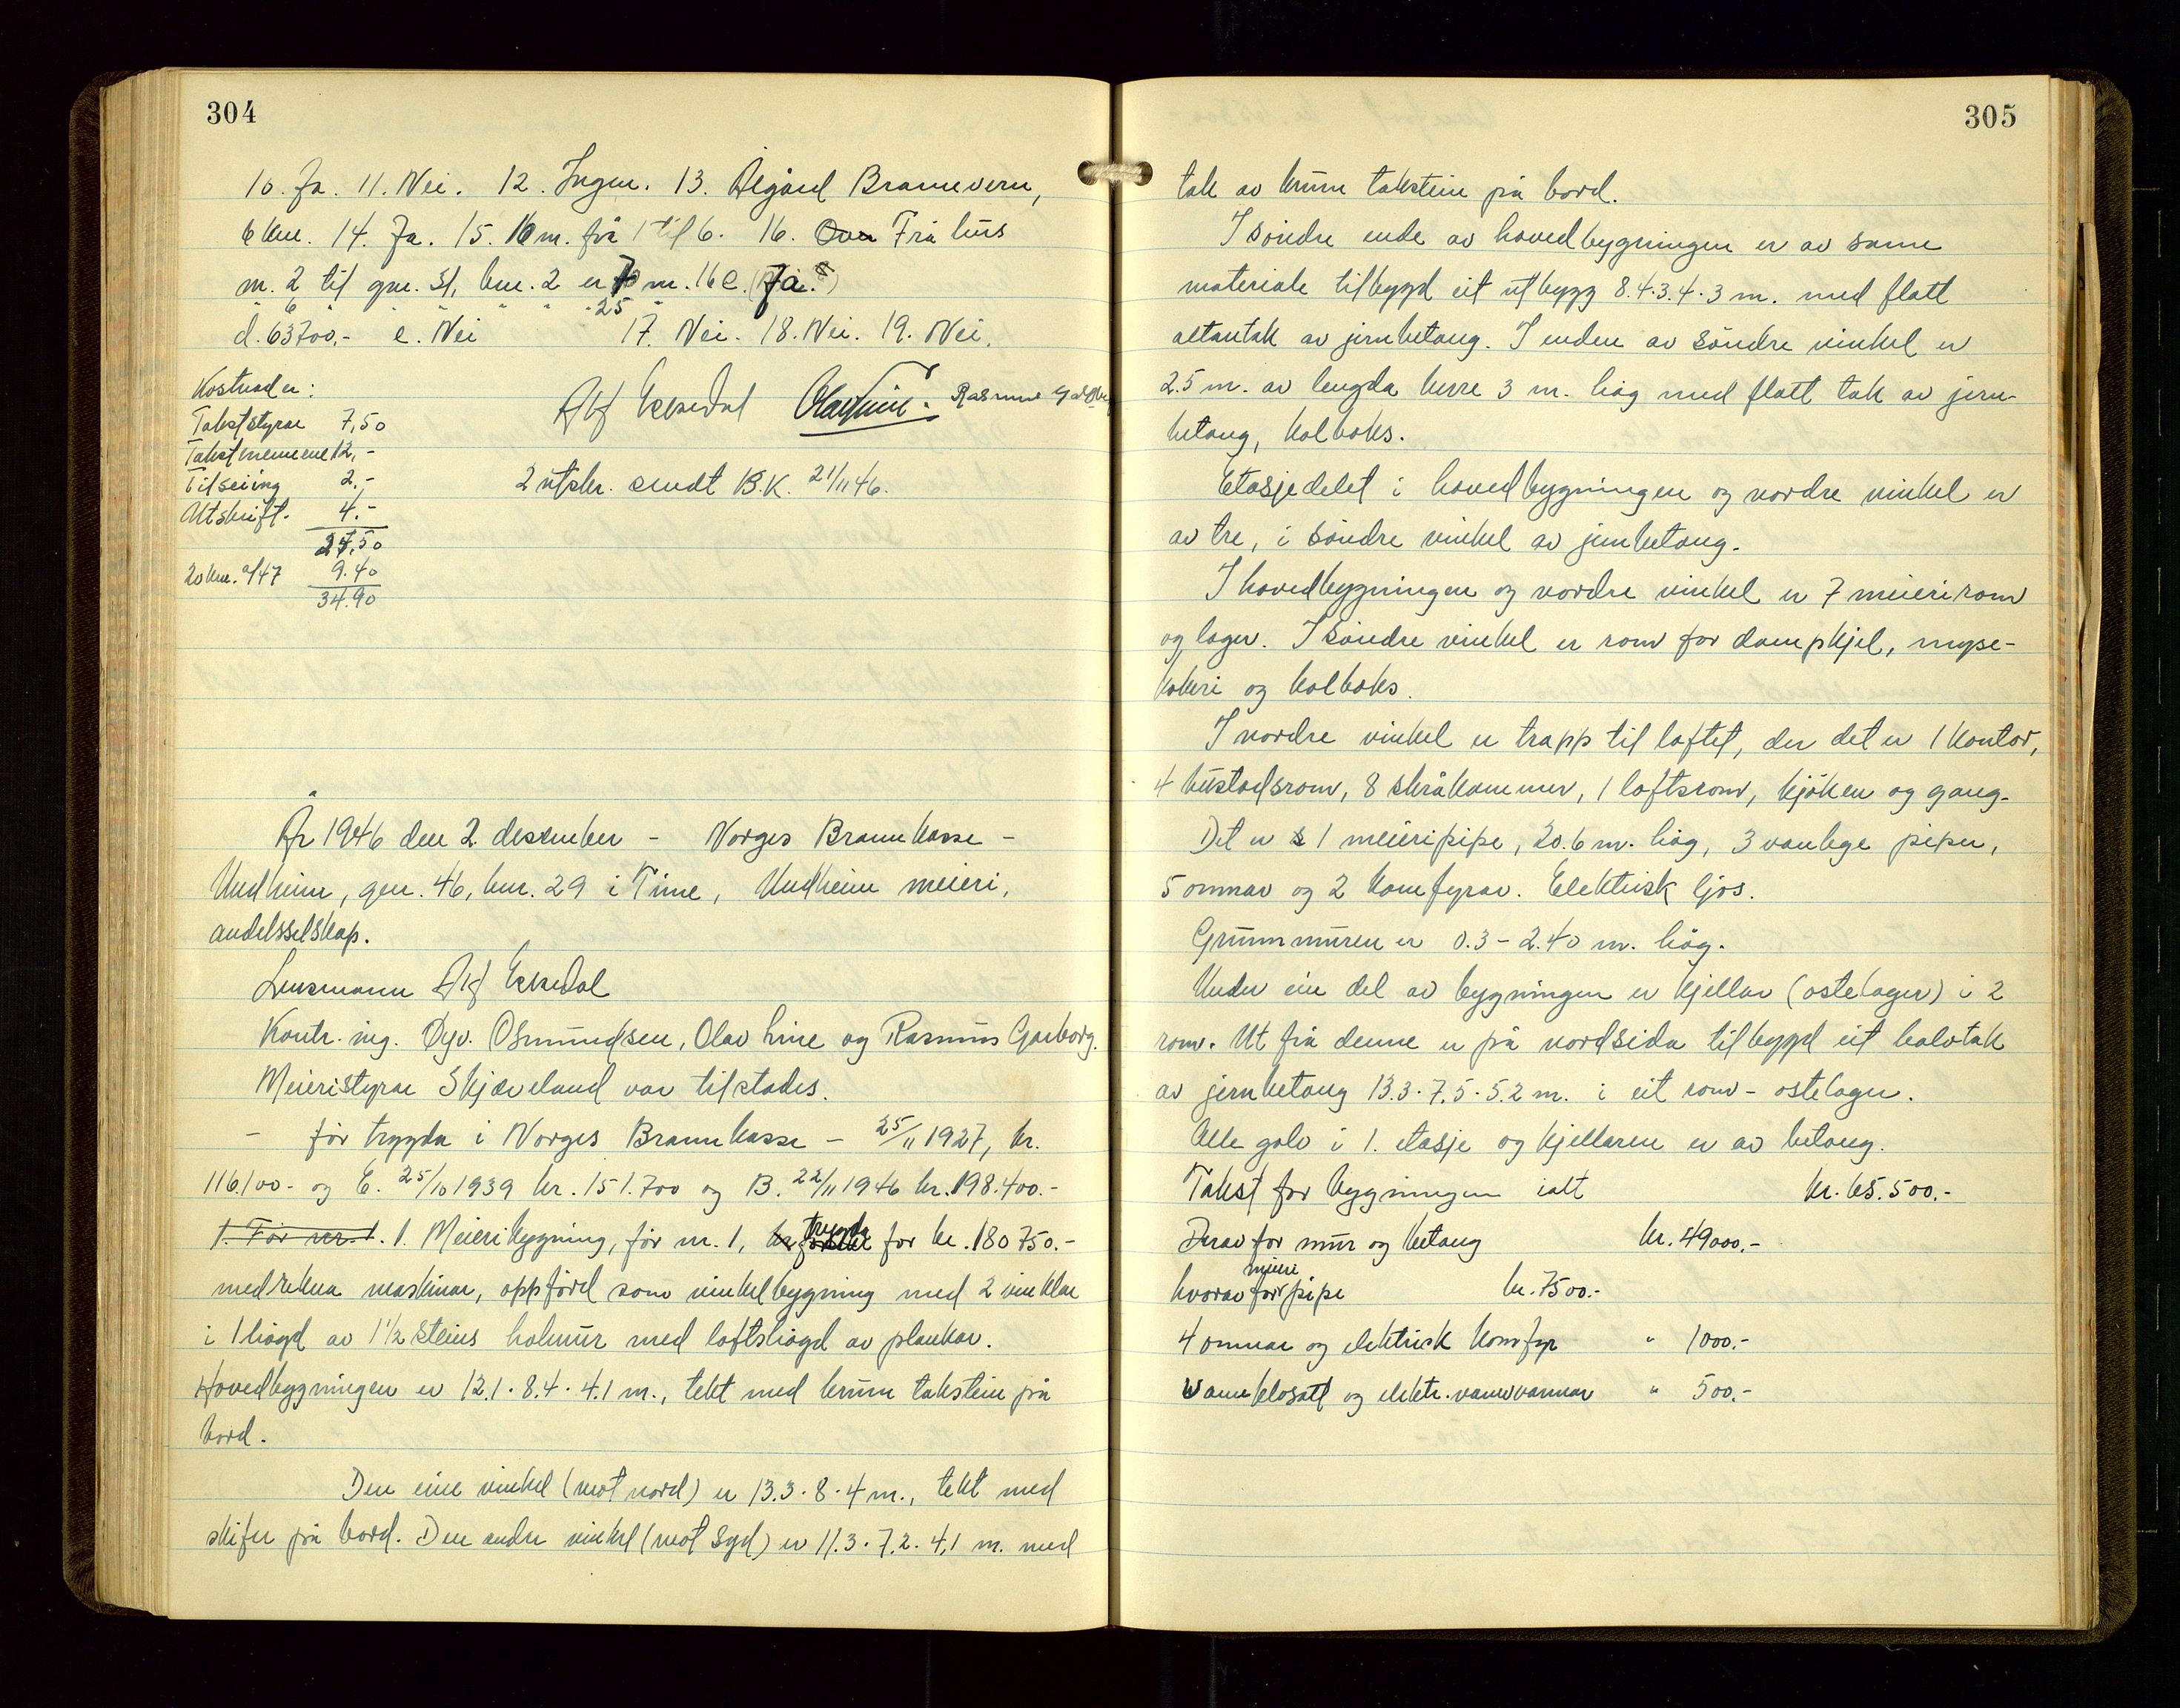 304
10. Ja. 11. Nei. 12. Ingen. 13. Ålgård Brannvern,
6 km. 14. Ja. 15. 16 m. frå 1 til 6. 16. Frå hus
nr. 2 til gnr. 31, bnr. 2 er m. 16 c. (Ja.)
" 6 " " " " " 25 "
d. 63700,- e. Nei 17. Nei. 18. Nei. 19. Nei.
Kostnader:
Takststyrar 7,50
Takstmennene 12,-
Tilseiing 2,-
Utskrift. 4.-
27,50
20 km. a/47 9.40
34.90
Alf Eksedal Olav Line. Rasmus Garborg
2 utskr. sendt B.K. 21/11 46.
År 1946 den 2. desember - Norges Brannkasse -
Undheim, gnr. 46, bnr. 29 i Time, Undheim meieri,
andelsselskap.
Lensmann Alf Eksedal
Kontr. ing. Osmundsen, Olav Line og Rasmus Garborg.
Meieristyrar Skjæveland var tilstades.
- før trygda i Norges Brannkasse - 25/11 1927, kr.
116.100- og E. 25/10 1939 kr. 151.700 og B. 22/11 1946 kr. 198.400.-
1. Før nr. 1. 1. Meieribygning, før nr. 1, trygda for kr. 180 750.-
medrekna maskinar, oppførd som vinkelbygning med 2 vinklar
i 1 høgd av 1 1/2 steins holmur med loftshøgd av plankar.
Hovedbygningen er 12.1 · 8.4 · 4.1 m., tekt med krum takstein på
bord.
Den eine vinkel (mot nord) er 13.3 · 8 · 4 m., tekt med
skifer på bord. Den andre vinkel (mot syd) er 11.3 · 7.2 · 4,1 m. med
305
tak av krum takstein på bord.
I søndre ende av hovedbygningen er av same
materiale tilbygd eit utbygg 8.4 · 3.4 · 3 m. med flatt
altantak av jernbetong. I enden av søndre vinkel er
2.5 m. av lengda berre 3 m. høg med flatt tak av jern-
betong, kolboks.
Etasjedelet i hovedbygningen og nordre vinkel er
av tre, i søndre vinkel av jernbetong.
I hovedbygningen og nordre vinkel er 7 meierirom
og lager. I søndre vinkel er rom for dampkjel, myse-
kokeri og kolboks.
I nordre vinkel er trapp til loftet, der det er 1 kontor,
4 bustadsrom, 8 skråkammer, 1 loftsrom, kjøken og gang.
Det er 1 meieripipe, 20.6 m. høg, 3 vanlege piper,
5 omnar og 2 komfyrar. Elektrisk ljos.
Grunnmuren er 0.3 - 2.40 m. høg.
Under ein del av bygningen er kjellar (ostelager) i 2
rom. Ut frå denne er på nordsida tilbygd eit halvtak
av jernbetong 13.3 · 7.5 · 5.2 m. i eit rom - ostelager.
Alle golv i 1. etasje og kjellaren er av betong.
Takst for bygningen ialt kr. 65.500.-
Derav for mur og betong kr. 49000.-
hvorav for meieripipe kr. 7500.-
4 omnar og elektrisk komfyr " 1000.-
Vannklosett og elektr. varmvannar " 500.-